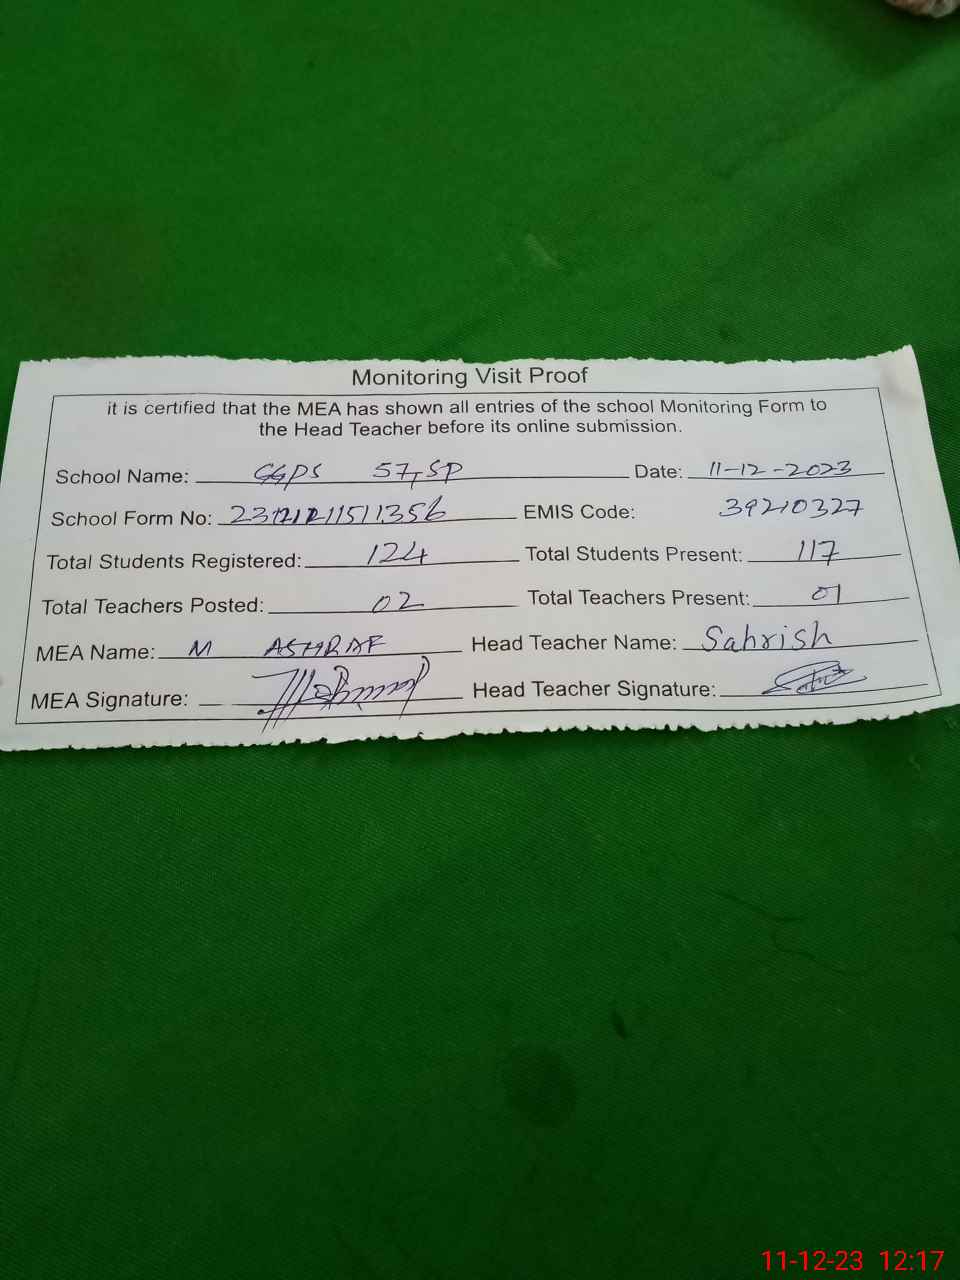 Monitoring Visit Proof
it is certified that the MEA has shown all entries of the school Monitoring Form to
the Head Teacher before its online submission.
School Name: GGPS 57,SP Date: 11-12-2023
School Form No: EMIS Code: 39210327
Total Students Registered: 124 Total Students Present: 117
Total Teachers Posted: 02 Total Teachers Present: 01
MEA Name: M ASHRAF Head Teacher Name: Sahrish
MEA Signature: Head Teacher Signature:
11-12-23 12:17